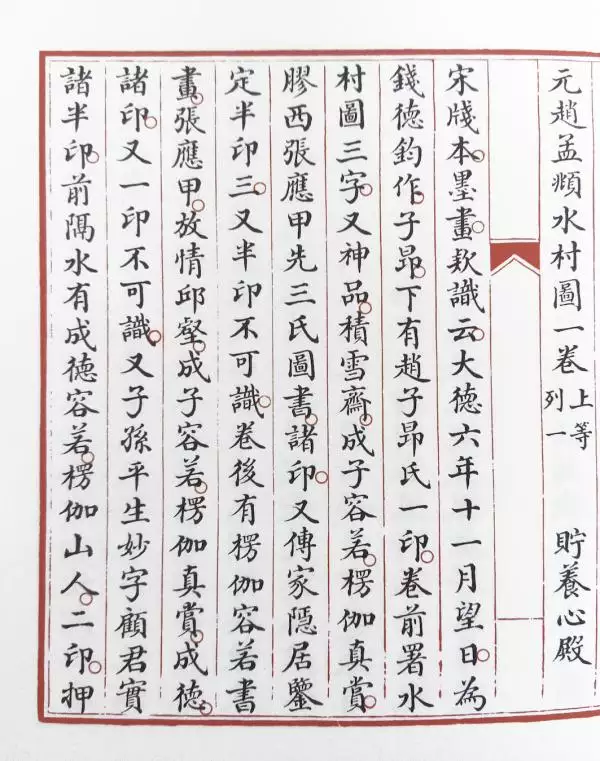 元趙孟頫水村圖一卷 上等列一 貯養心殿
宋牋本。墨畫。欵識云。大德六年十一月望日。為
錢德鈞作。子昂。下有趙子昂氏一印。卷前署水
村圖三字。又神品。積雪齋。成子容若。楞伽真賞。
膠西張應甲先三氏圖書。諸印。又傳家隱居鑒
定半印三。又半印不可識。卷後有楞伽容若書
畫。張應甲。放情邱壑。成子容若。楞伽真賞。成德。
諸印。又一印不可識。又子孫平生妙字顧君實
諸半印。前隔水有成德容若。楞伽山人。二印。押